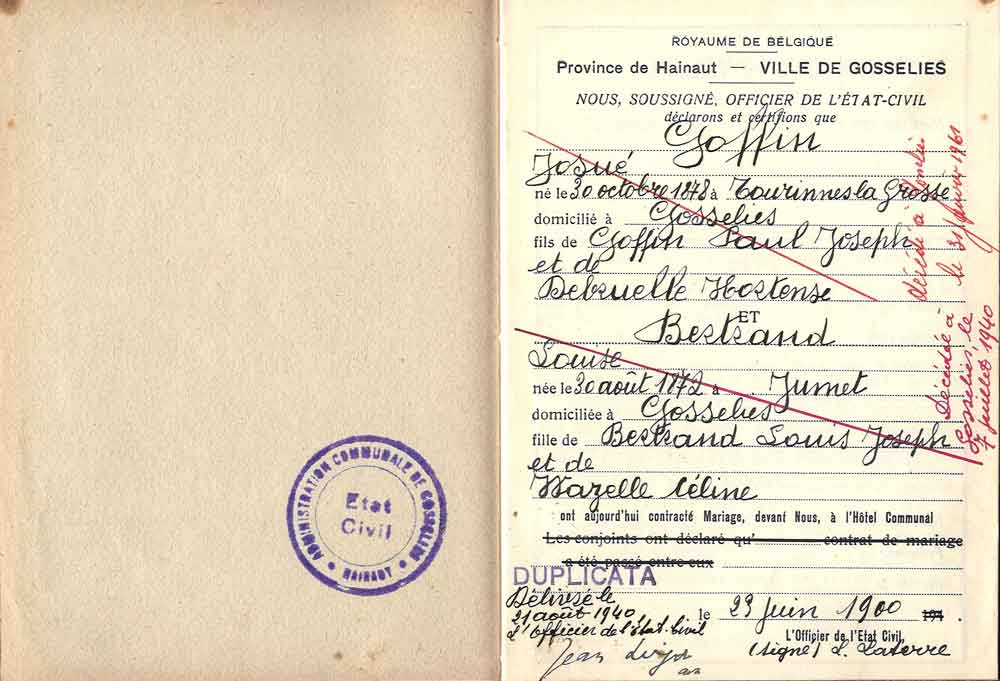 ADMINISTRATION COMMUNALE DE GOSSELIES
Etat
Civil
HAINAUT
ROYAUME DE BELGIQUE
Province de Hainaut — VILLE DE GOSSELIES
NOUS, SOUSSIGNÉ, OFFICIER DE L'ÉTAT-CIVIL
déclarons et certifions que
Goffin
Josué
né le 30 octobre 1878 à Tourinnes la Grosse
domicilié à Gosselies
fils de Goffin Paul Joseph
et de
Debruelle Hortense
ET
Bertrand
Louise
née le 30 août 1872 à Jumet
domiciliée à Gosselies
fille de Bertrand Louis Joseph
et de
Wazelle Céline
ont aujourd'hui contracté Mariage, devant Nous, à l'Hôtel Communal
Les conjoints ont déclaré qu' contrat de mariage
a été passé entre eux
DUPLICATA
Délivré le
21 août 1940
L'Officier de l'état-Civil
Jean
le 23 Juin 1900 194
L'Officier de l'Etat Civil,
(signé) L. Laterre
décédé à
le 31 janvier 1961
Décédée à
Gosselies, le
7 juillet 1940